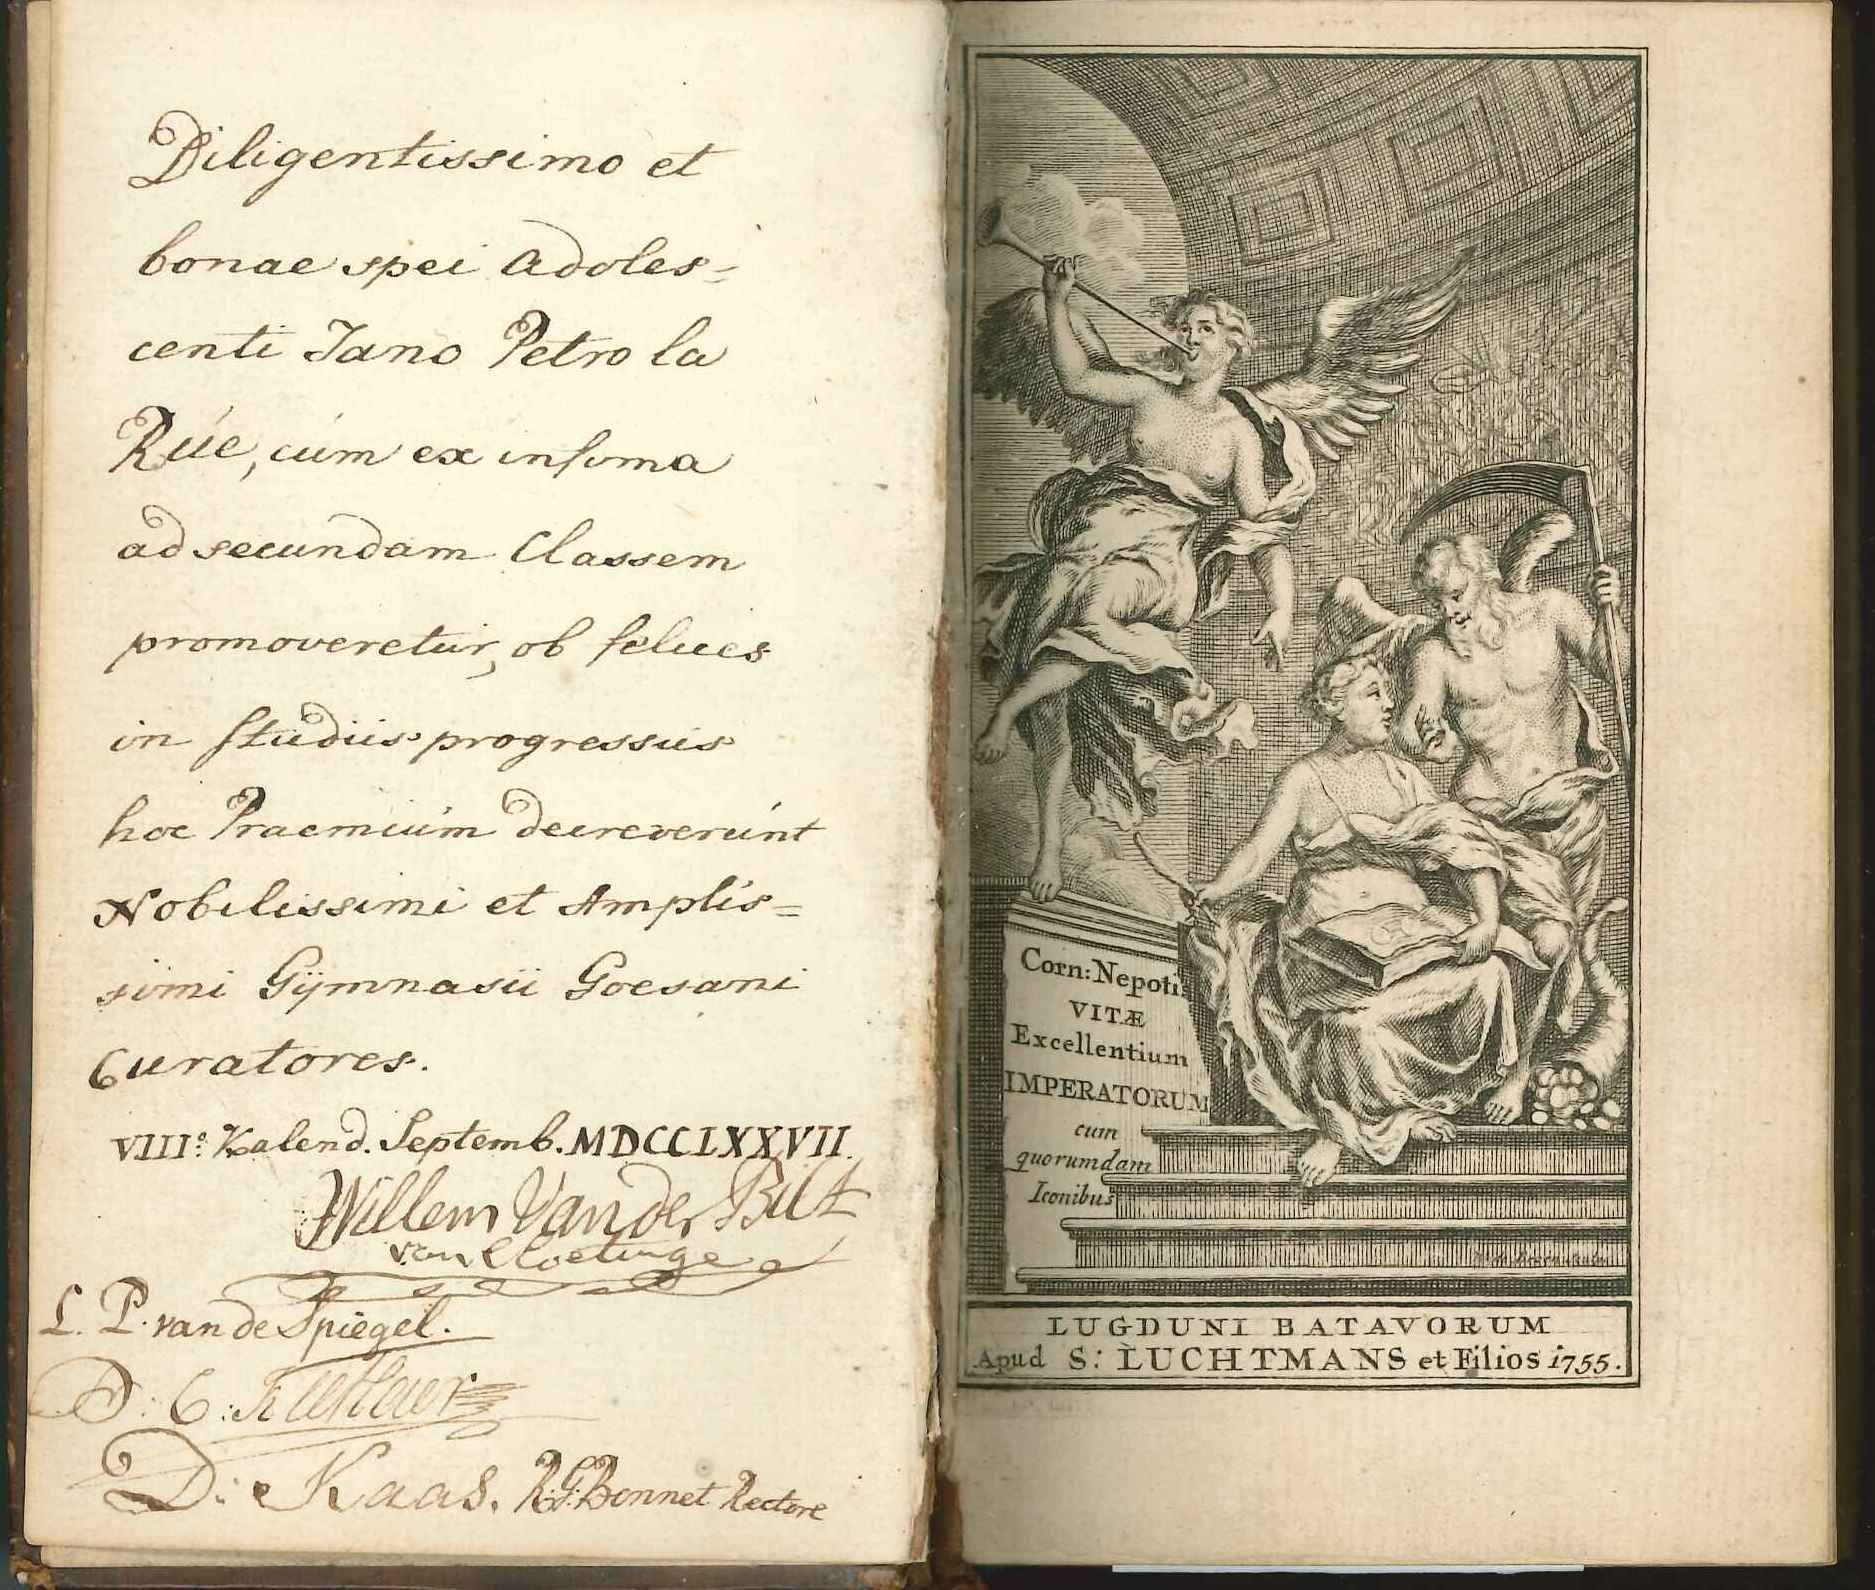 Diligentissimo et
bonae spei Adoles=
centi Iano Petro la
Rúe, cúm ex infima
ad secundam Classem
promoveretúr, ob felices
in Stúdiis progressús
hoc Praemiúm decreverúnt
Nobilissimi et Amplis=
simi Gÿmnasii Goesani
Curatores.
VIIIº. Kalend. Septemb. MDCCLXXVII.
Willem Van der Bilt
van Cloetinge
L. P. van de Spiegel.
D: C:
D: Kaas. R:G: Bonnet Rectore
Corn: Nepotis
VITÆ
Excellentium
IMPERATORUM
cum
quorumdam
Iconibus
LUGDUNI BATAVORUM
Apud S: LUCHTMANS et Filios 1755.